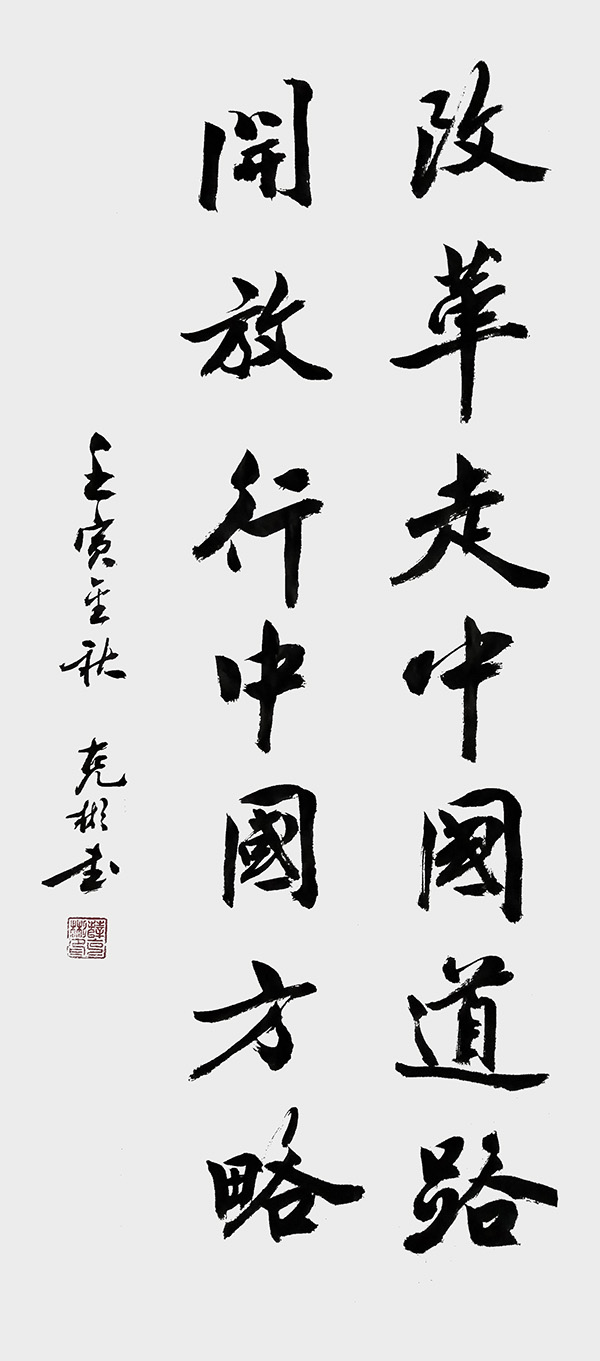 改革走中國道路
開放行中國方略
壬寅金秋 克彬書